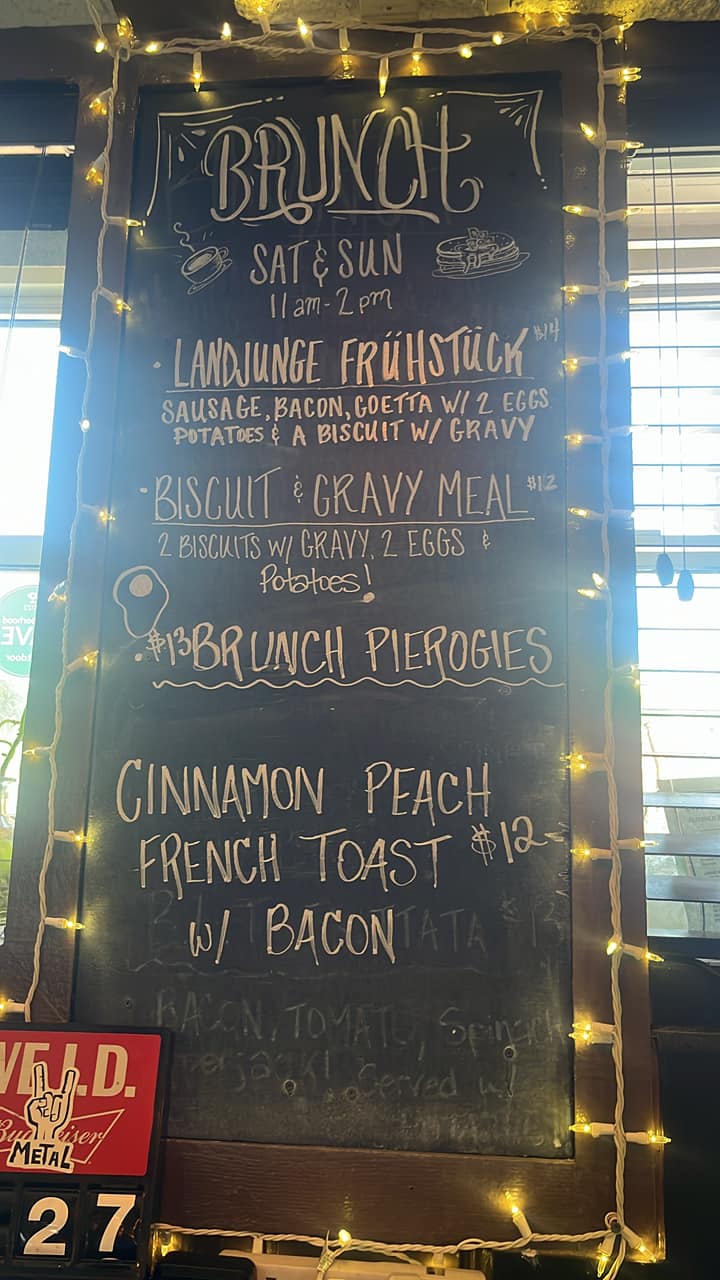 BRUNCH
SAT & SUN
11 am - 2 pm
· LANDJUNGE FRÜHSTÜCK $14
SAUSAGE, BACON, GOETTA W/ 2 EGGS
POTATOES & A BISCUIT W/ GRAVY
· BISCUIT & GRAVY MEAL $12
2 BISCUITS W/ GRAVY, 2 EGGS &
Potatoes!
· $13 BRUNCH PIEROGIES
CINNAMON PEACH
FRENCH TOAST $12
W/ BACON
TATA $13
BACON, TOMATO,
Served w/
I.D.
Budweiser
METAL
27